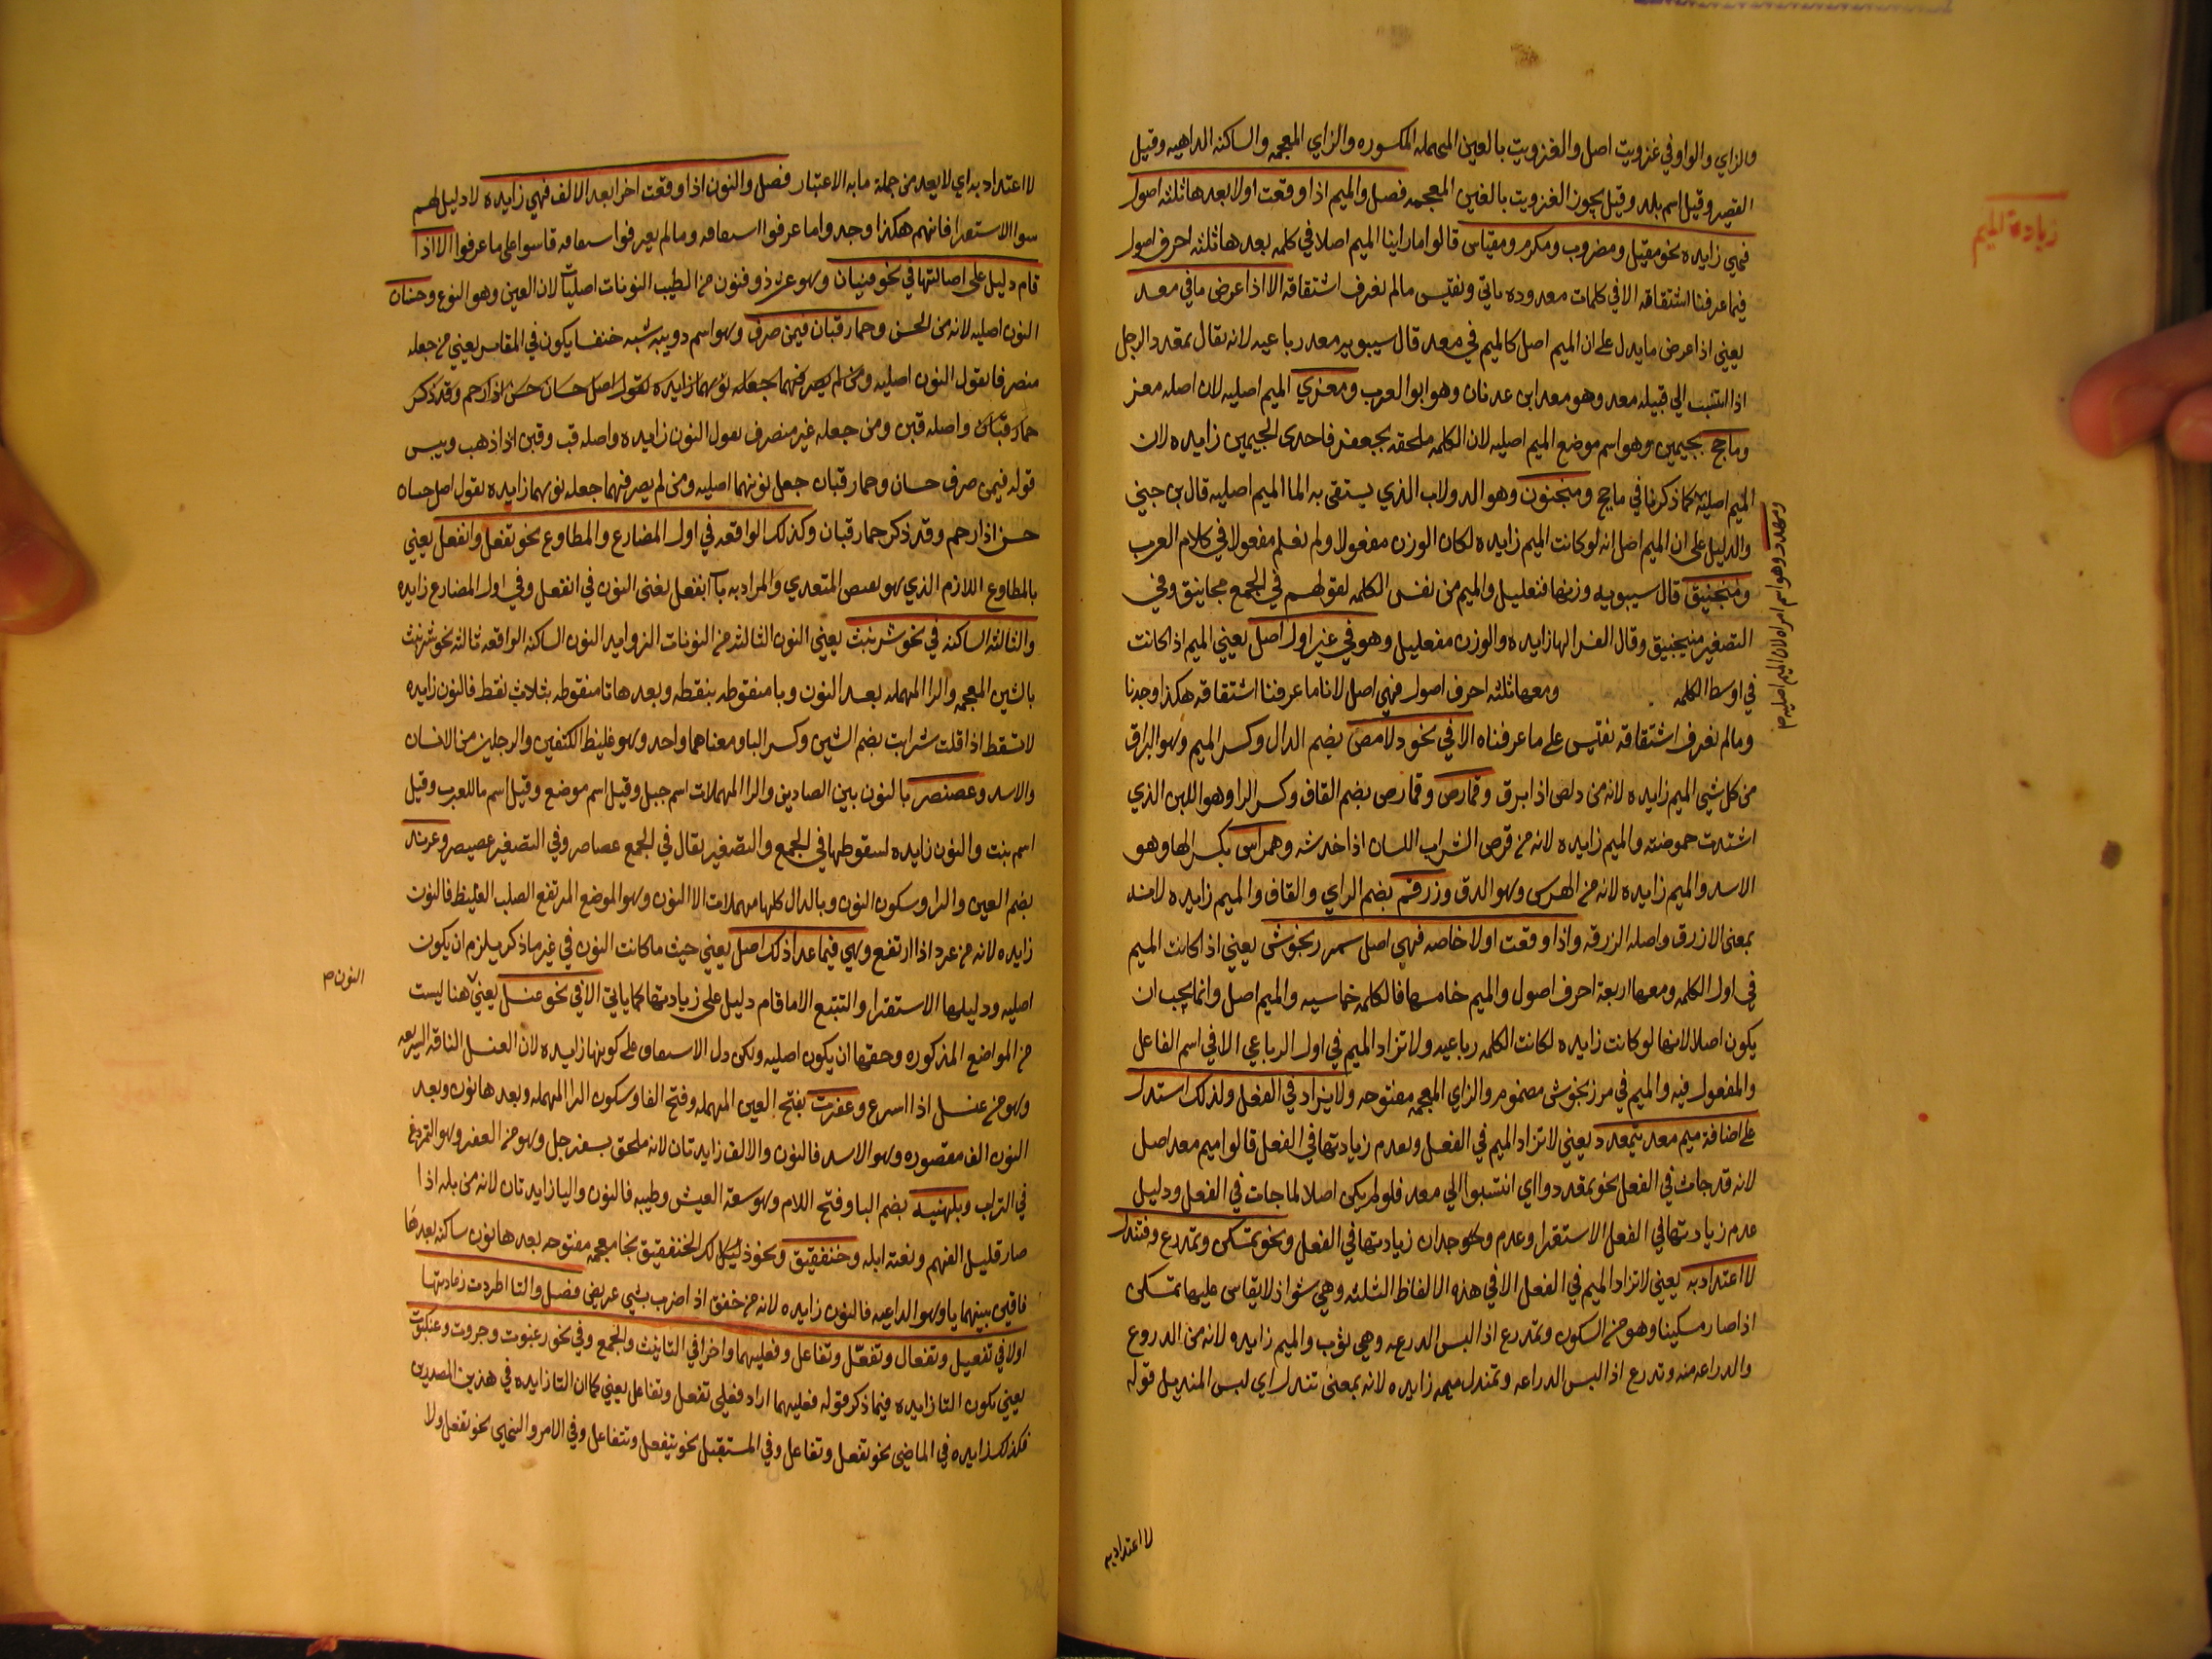 والزاي والواو في غزويت اصل والغزويت بالعين المهمله المكسوره والزاي المعجمه والساكنه الداهيه وقيل
القصير وقيل اسم بلد وقيل يجوز الغزويت بالغين المعجمه فصل والميم اذا وقعت اولا بعدها ثلثه اصول
فهي زايده نحو مقيل ومضروب ومكرم ومقياس قالوا ما راينا الميم اصلا في كلمه بعدها ثلثه احرف اصول
فيما عرفنا اشتقاقه الا في كلمات معدوده ياتي ونقيس مالم نعرف اشتقاقه الا اذا عرض ما في معد
يعني اذا عرض ما يدل على ان الميم اصل كالميم في معد قال سيبويه معد رباعيه لانه يقال تمعدد الرجل
اذا انتسب الي قبيله معد وهو معد ابن عدنان وهو ابو العرب ومعزي الميم اصليه لان اصله معز
وماجج بجيمين وهو اسم موضع الميم اصليه لان الكلمه ملحقه بجعفر فاحدى الجيمين زايده لان
الميم اصليه كما ذكرنا في ماجج ومنجنون وهو الدولاب الذي يستقى به الما الميم اصليه قال بن جني
والدليل على ان الميم اصل انه لو كانت الميم زايده لكان الوزن مفعولا ولم نعلم مفعولا في كلام العرب
ومنجنيق قال سيبويه وزنها فنعليل والميم من نفس الكلمه لقولهم في الجمع مجانيق وفي
التصغير منيجنيق وقال الفرا انها زايده والوزن مفعليل وهو في غير اول اصل يعني الميم اذا كانت
في اوسط الكلمه ومعها ثلثه احرف اصول فهي اصل لانا ما عرفنا اشتقاقه هكذا وجدنا
ومالم نعرف اشتقاقه نقيس على ما عرفناه الا في نحو دلامص بضم الدال وكسر الميم وهو البراق
من كل شي الميم زايده لانه من دلص اذا برق وقمارص وقمارص بضم القاف وكسر الرا وهو اللبن الذي
اشتدت حموضته والميم زايده لانه من قرص الشراب اللسان اذا خدشه وهرماس بكسر الها وهو
الاسد والميم زايده لانه من الهرس وهو الدق وزرقم بضم الزاي والقاف والميم زايده لانه
بمعنى الازرق واصله الزرقه واذا وقعت اولا خاصه فهي اصل كمرزنجوش يعني اذا كانت الميم
في اول الكلمه ومعها اربعة احرف اصول والميم خامسها فالكلمه خماسيه والميم اصل وانما يجب ان
يكون اصلا لانها لو كانت زايده لكانت الكلمه رباعيه ولا تزاد الميم في اول الرباعي الا في اسم الفاعل
والمفعول فيه والميم في مرزنجوش مضمومه والزاي المعجمه مفتوحه ولا يزاد في الفعل ولذلك استدل
على اصالة ميم معد بتمعدد يعني لا تزاد الميم في الفعل ولعدم زيادتها في الفعل قالوا ميم معد اصل
لانه قد جات في الفعل نحو تمعددوا اي انتسبوا الي معد فلو لم يكن اصلا لما جات في الفعل ودليل
عدم زيادتها في الفعل الاستقرا وعدم وجدان زيادتها في الفعل ونحو تمسكن وتمدرع وتمندل
لا اعتداد به يعني لا تزاد الميم في الفعل الا في هذه الالفاظ الثلثه وهي شواذ لا يقاس عليها تمسكن
اذا صار مسكينا وهو من السكون وتمدرع اذا لبس المدرعه وهي ثوب والميم زايده لانه من الدروع
والدراعه منه وتدرع اذا لبس الدراعه وتمندل ميمه زايده لانه بمعنى تندل اي لبس المنديل قوله
زيادة الميم
ومهدد وهو اسم امراه لان الميم اصليه م
لا اعتداد به
لا اعتداد به اي لا يعد من جملة ما به الاعتبار فصل والنون اذا وقعت اخرا بعد الالف فهي زايده لا دليل لهم
سوا الاستقرا فانهم هكذا وجدوا ما عرفوا اسقاقه ومالم يعرفوا اسقاقه قاسوا على ما عرفوا الا اذا
قام دليل على اصالتها في نحو فينان وهو من ذو فنون من الطيب النونات اصليات لان العين وهو النوع وحسان
النون اصليه لانه من الحسن وحمار قبان فيمن صرف وهو اسم دويبه شبه خنفسا يكون في المقابر يعني من جعله
منصرفا يقول النون اصليه ومن لم يصرفهما جعله نونهما زايده لقول اصل حسان حس اذا رحم وقد ذكر
حمار قبان واصله قبن ومن جعله غير منصرف يقول النون زايده واصله قب وقبن اذا ذهب ويبس
قوله فيمن صرف حسان وحمار قبان جعل نونهما اصليه ومن لم يصرفهما جعله نونهما زايده يقول اصل حسان
حس اذا رحم وقد ذكر حمار قبان وكذلك الواقعه في اول المضارع والمطاوع نحو نفعل وانفعل يعني
بالمطاوع اللازم الذي هو نقيض المتعدي والمراد به باب انفعل يعني النون في انفعل وفي اول المضارع زايده
والثالثه الساكنه في نحو شرنبث يعني النون الثالثه من النونات الزوايد النون الساكنه الواقعه ثالثه نحو شرنبث
بالشين المعجمه والرا المهمله بعد النون وبا منقوطه بنقطه وبعدها ثا منقوطه بثلاث نقط فالنون زايده
لا تسقط اذا قلت شرابث بضم الشين وكسر البا ومعناهما واحد وهو غليظ الكتفين والرجلين من الانسان
والاسد وعصنصر بالنون بين الصادين والرا المهملات اسم جبل وقيل اسم موضع وقيل اسم ما للعرب وقيل
اسم بنت والنون زايده لسقوطها في الجمع والتصغير يقال في الجمع عصاصر وفي التصغير عصيصر وعرند
بضم العين والرا وسكون النون وبالدال كلها مهملات الا النون وهو الموضع المرتفع الصلب الغليظ فالنون
زايده لانه من عرد اذا ارتفع وهي فيما عدا ذلك اصل يعني حيث ما كانت النون في غير ما ذكر يلزم ان يكون
اصليه ودليلها الاستقرا والتتبع الا ما قام دليل على زيادتها كما ياتي الا في نحو عنسل يعني هنا ليست
من المواضع المذكوره وحقها ان يكون اصليه ولكن دل الاسقاق على كونها زايده لان العنسل الناقه السريعه
وهو من عسل اذا اسرع وعفرنا بفتح العين المهمله وفتح الفا وسكون الرا المهمله وبعدها نون وبعد
النون الف مقصوره وهو الاسد فالنون والالف زايدتان لانه ملحق بسفرجل وهو من العفر وهو التمرغ
في التراب وبلهنيه بضم البا وفتح اللام وهو سعة العيش وطيبه فالنون واليا زايدتان لانه من بله اذا
صار قليل الفهم ونعته ابله وخنفقيق ونحو ذلك الخنفقيق بخا معجمه مفتوحه بعدها نون ساكنه بعدها
فا قفين بينهما يا وهو الداهيه فالنون زايده لانه من خفق اذا ضرب بشي عريض فصل والتا اطردت زيادتها
اولا في تفعيل وتفعال وتفعّل وتفاعل وفعليهما واخرا في التانيث والجمع وفي نحو رغبوت وجبروت وعنكبوت
يعني تكون التا زايده فيما ذكر قوله فعليهما اراد فعلي تفعل وتفاعل يعني كما ان التا زايده في هذين المصدرين
فكذلك زايده في الماضي نحو تفعل وتفاعل وفي المستقبل نحو يتفعل ويتفاعل وفي الامر والنهي نحو تفعل ولا
النون م